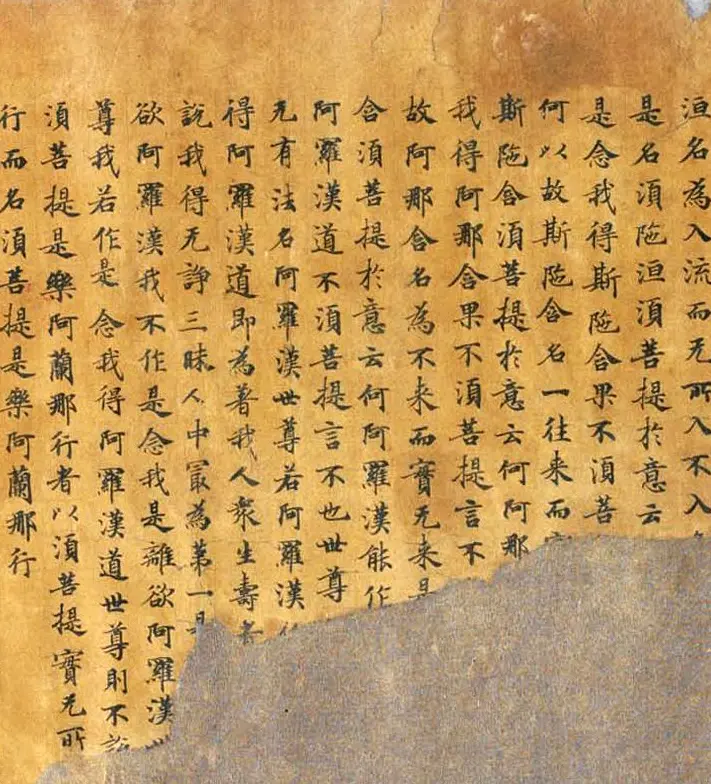 洹名為入流而无所入不入
是名須陁洹須菩提於意云
是念我得斯陁含果不須菩
何以故斯陁含名一往来而
斯陁含須菩提於意云何阿那
我得阿那含果不須菩提言不
故阿那含名為不来而實无来是
含須菩提於意云何阿羅漢能作
阿羅漢道不須菩提言不也世尊
无有法名阿羅漢世尊若阿羅漢
得阿羅漢道即為著我人衆生壽者
說我得无諍三昧人中冣為第一是
欲阿羅漢我不作是念我是離欲阿羅漢
尊我若作是念我得阿羅漢道世尊則不說
須菩提是樂阿蘭那行者以須菩提實无所
行而名須菩提是樂阿蘭那行